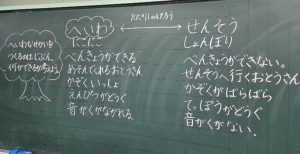 へいわなせかいを
つくるのはじぶん。
何ができるか考えよう。
へいわ
にこにこ
べんきょうができる
あそんでくれるおとうさん
かぞくいっしょ
えんぴつがどうぐ
音がくがながれる。
せんそう
しょんぼり
べんきょうができない。
せんそうへ行くおとうさん
かぞくがばらばら
てっぽうがどうぐ
音がくがない。